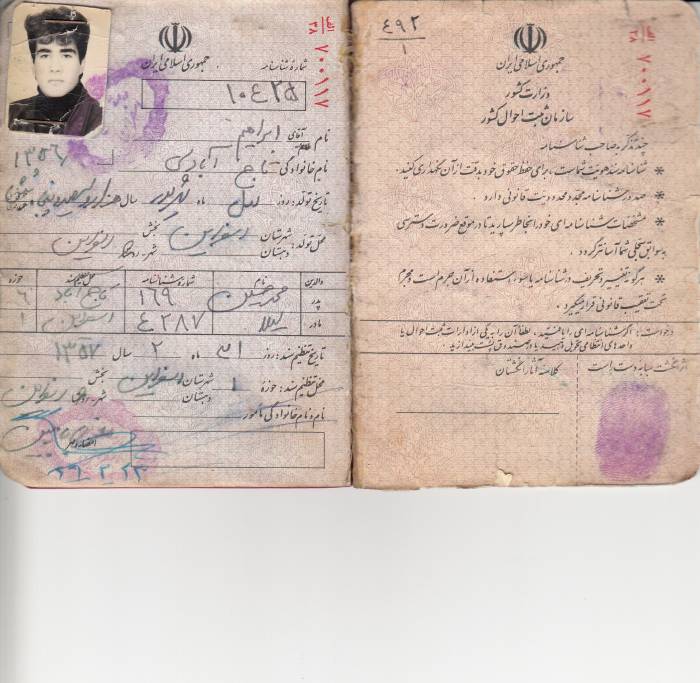 الف
۳۸
۷۰۰۱۱۷
جمهوری اسلامی ایران
شمارهٔ شناسنامه
۱۰۴۲۵
نام آقای ابراهیم
نام خانوادگی: تاج آبادی
۱۳۵۶
تاریخ تولد: روز اول ماه شهریور سال هزار و سیصد و پنجاه و
محل تولد: شهرستان اسفراین بخش اسفراین
دهستان شهر-روستا
والدین نام شماره شناسنامه محل تنظیم سند حوزه
پدر محمدحسین ۱۶۹ ۶
مادر لیلا ۴۲۸۷ اسفراین ۱
تاریخ تنظیم سند: روز ۳۱ ماه ۲ سال ۱۳۵۷
محل تنظیم سند: حوزهٔ ۱ شهرستان اسفراین بخش اسفراین
دهستان شهر-روستا
نام و نام خانوادگی مأمور
۴۹۲
۱
الف
۳۸
۷۰۰۱۱۷
جمهوری اسلامی ایران
وزارت کشور
سازمان ثبت احوال کشور
چند تذکر به صاحب شناسنامه
* شناسنامه سند هویت شماست، برای حفظ حقوق خود بدقت از آن نگهداری کنید.
* صدور شناسنامه مجدد محدودیت قانونی دارد.
* مشخصات شناسنامه‌ای خود را بخاطر بسپارید تا در موقع ضرورت دسترسی
به سوابق سجلی شما آسانتر گردد.
* هرگونه تغییر و تحریف در شناسنامه یا سوء استفاده از آن جرم است و مجرم
تحت تعقیب قانونی قرار میگیرد.
درخواست: اگر شناسنامه‌ای را یافتید، لطفاً آن را به یکی از ادارات ثبت احوال یا
واحدهای انتظامی تحویل دهید یا در صندوق پست بیندازید.
اثر انگشت سبابه دست راست
کلاسه آثار انگشتان